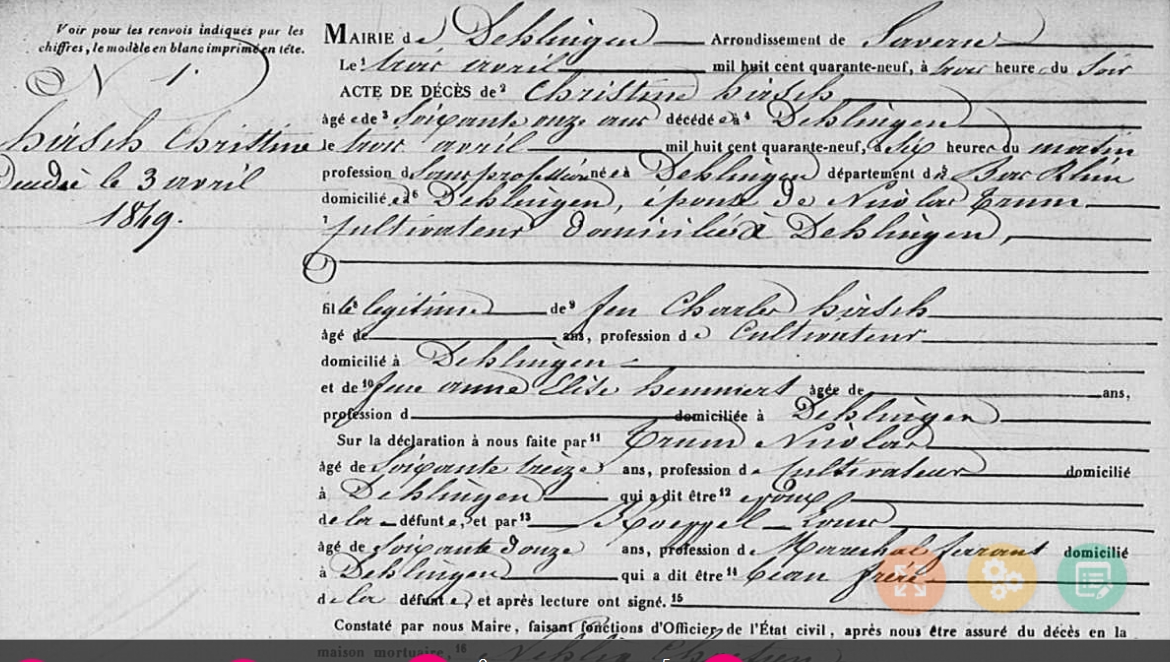 Voir pour les renvois indiqués par les
chiffres, le modèle en blanc imprimé en tête.
N 1.
hirsch Christine
Decdée le 3 avril
1849.
MAIRIE de Dehlingen Arrondissement de Saverne
Le 1 trois avril mil huit cent quarante-neuf, à trois heure du Soir
ACTE DE DÉCÈS de 2 Christine hirsch
âgée de 3 Soixante onze ans décédée à 4 Dehlingen
le trois avril mil huit cent quarante-neuf, à Six heures du matin
profession de Sans profession née à Dehlingen département du 5 Bas Rhin
domiciliée à 6 Dehlingen, épouse de Nicolas Trum
7 Cultivateur domicilié à Dehlingen,
fille 8 legitime de 9 feu Charles hirsch
âgé de ans, profession de Cultivateur
domicilié à Dehlingen
et de 10 feue anne Elise hemmert âgée de ans,
profession d domiciliée à Dehlingen
Sur la déclaration à nous faite par 11 Trum Nicolas
âgé de Soixante treize ans, profession de Cultivateur domicilié
à Dehlingen qui a dit être 12 epoux
de la défunte, et par 13 Koeppel Louis
âgé de Soixante douze ans, profession de Marechal ferrant domicilié
à Dehlingen qui a dit être 14 beau frere
de la défunte, et après lecture ont signé. 15
Constaté par nous Maire, faisant fonctions d'Officier de l'État civil, après nous être assuré du décès en la
maison mortuaire. 16